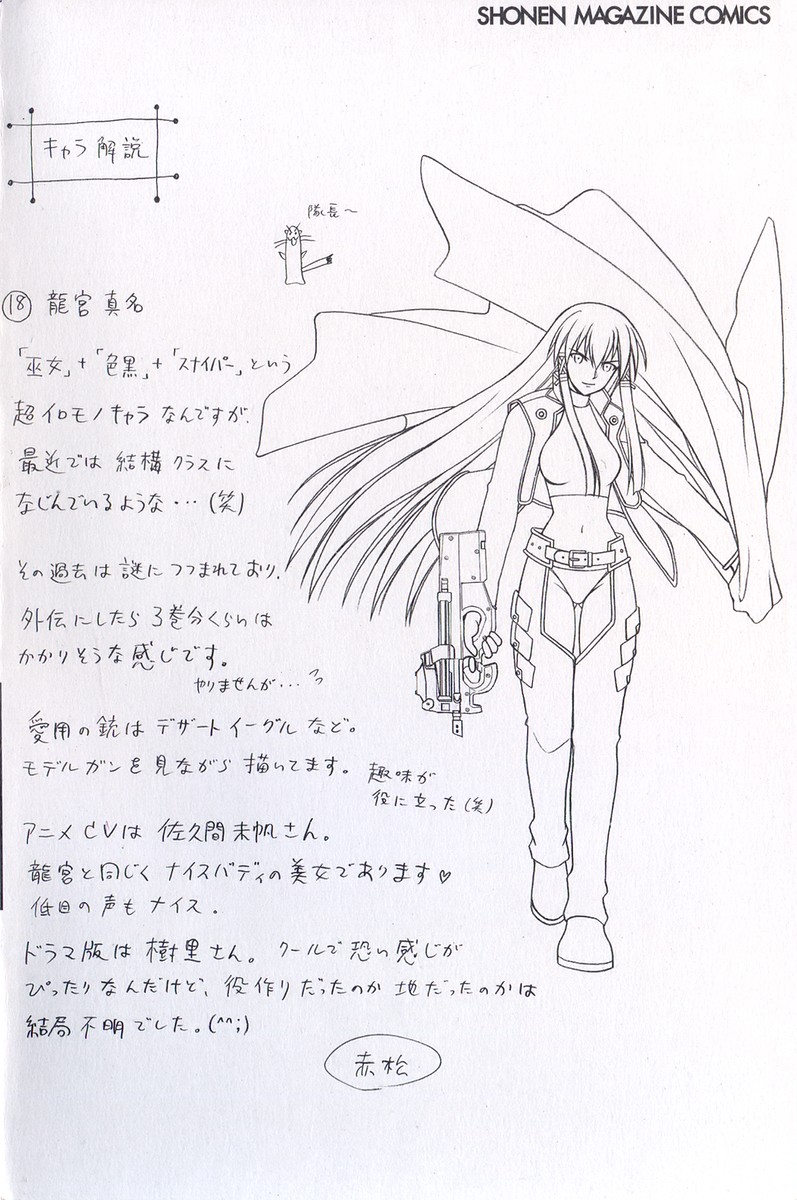 SHONEN MAGAZINE COMICS
キャラ解説
隊長〜
⑱ 龍宮 真名
「巫女」+「色黒」+「スナイパー」という
超イロモノキャラなんですが、
最近では結構クラスに
なじんでいるような・・・(笑)
その過去は謎につつまれており、
外伝にしたら3巻分くらいは
かかりそうな感じです。
やりませんが・・・
愛用の銃はデザートイーグルなど。
モデルガンを見ながら描いてます。
趣味が
役に立った(笑)
アニメCVは 佐久間未帆さん。
龍宮と同じくナイスバディの美女であります♡
低目の声もナイス。
ドラマ版は樹里さん。クールで恐い感じが
ぴったりなんだけど、役作りだったのか地だったのかは
結局不明でした。(^^;)
赤松